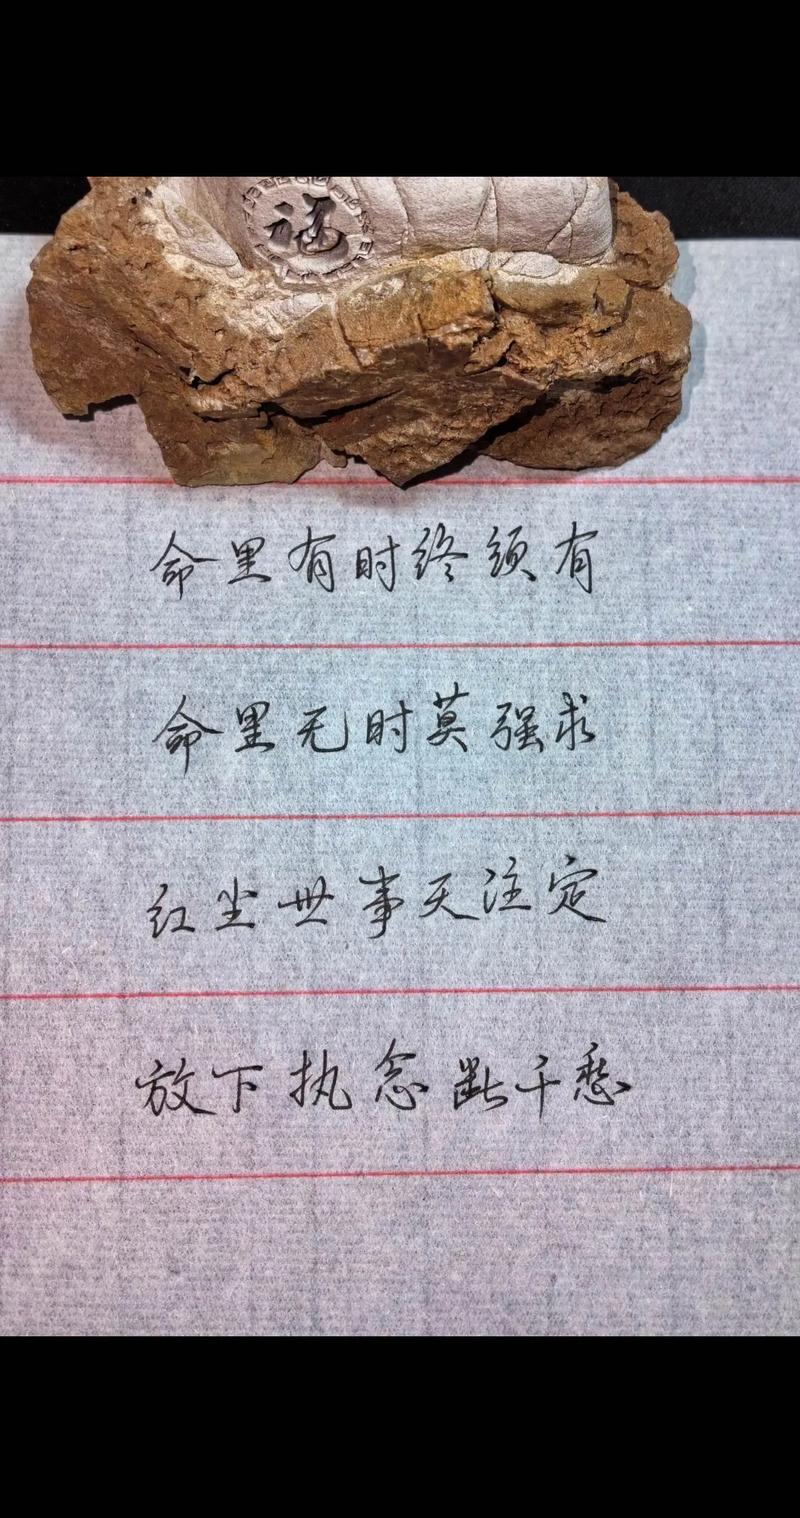 福
命里有时终须有
命里无时莫强求
红尘世事天注定
放下执念断千愁